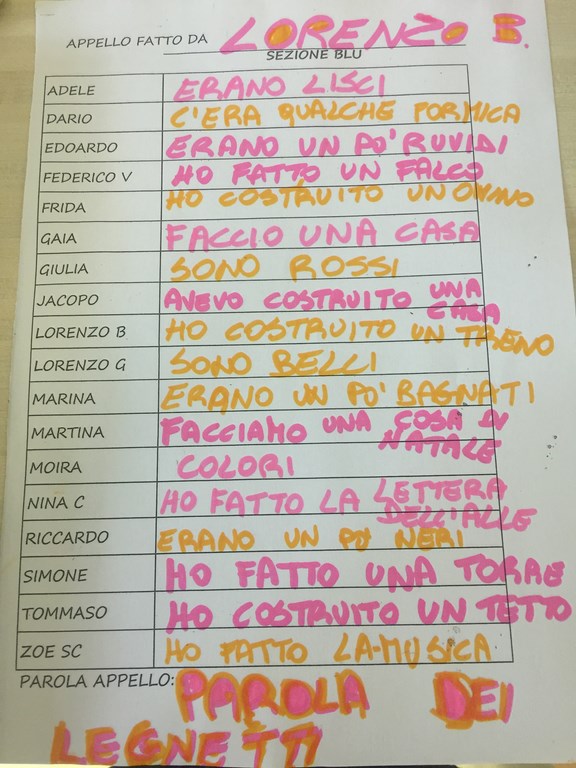 APPELLO FATTO DA LORENZO B.
SEZIONE BLU
ADELE ERANO LISCI
DARIO C'ERA QUALCHE FORMICA
EDOARDO ERANO UN PO' RUVIDI
FEDERICO V HO FATTO UN FALCO
FRIDA HO COSTRUITO UN OMINO
GAIA FACCIO UNA CASA
GIULIA SONO ROSSI
JACOPO AVEVO COSTRUITO UNA
CASA
LORENZO B HO COSTRUITO UN TRENO
LORENZO G SONO BELLI
MARINA ERANO UN PO' BAGNATI
MARTINA FACCIAMO UNA COSA DI
NATALE
MOIRA COLORI
NINA C HO FATTO LA LETTERA
DELL'ALLE
RICCARDO ERANO UN PO NERI
SIMONE HO FATTO UNA TORRE
TOMMASO HO COSTRUITO UN TETTO
ZOE SC HO FATTO LA MUSICA
PAROLA APPELLO: PAROLA DEI
LEGNETTI